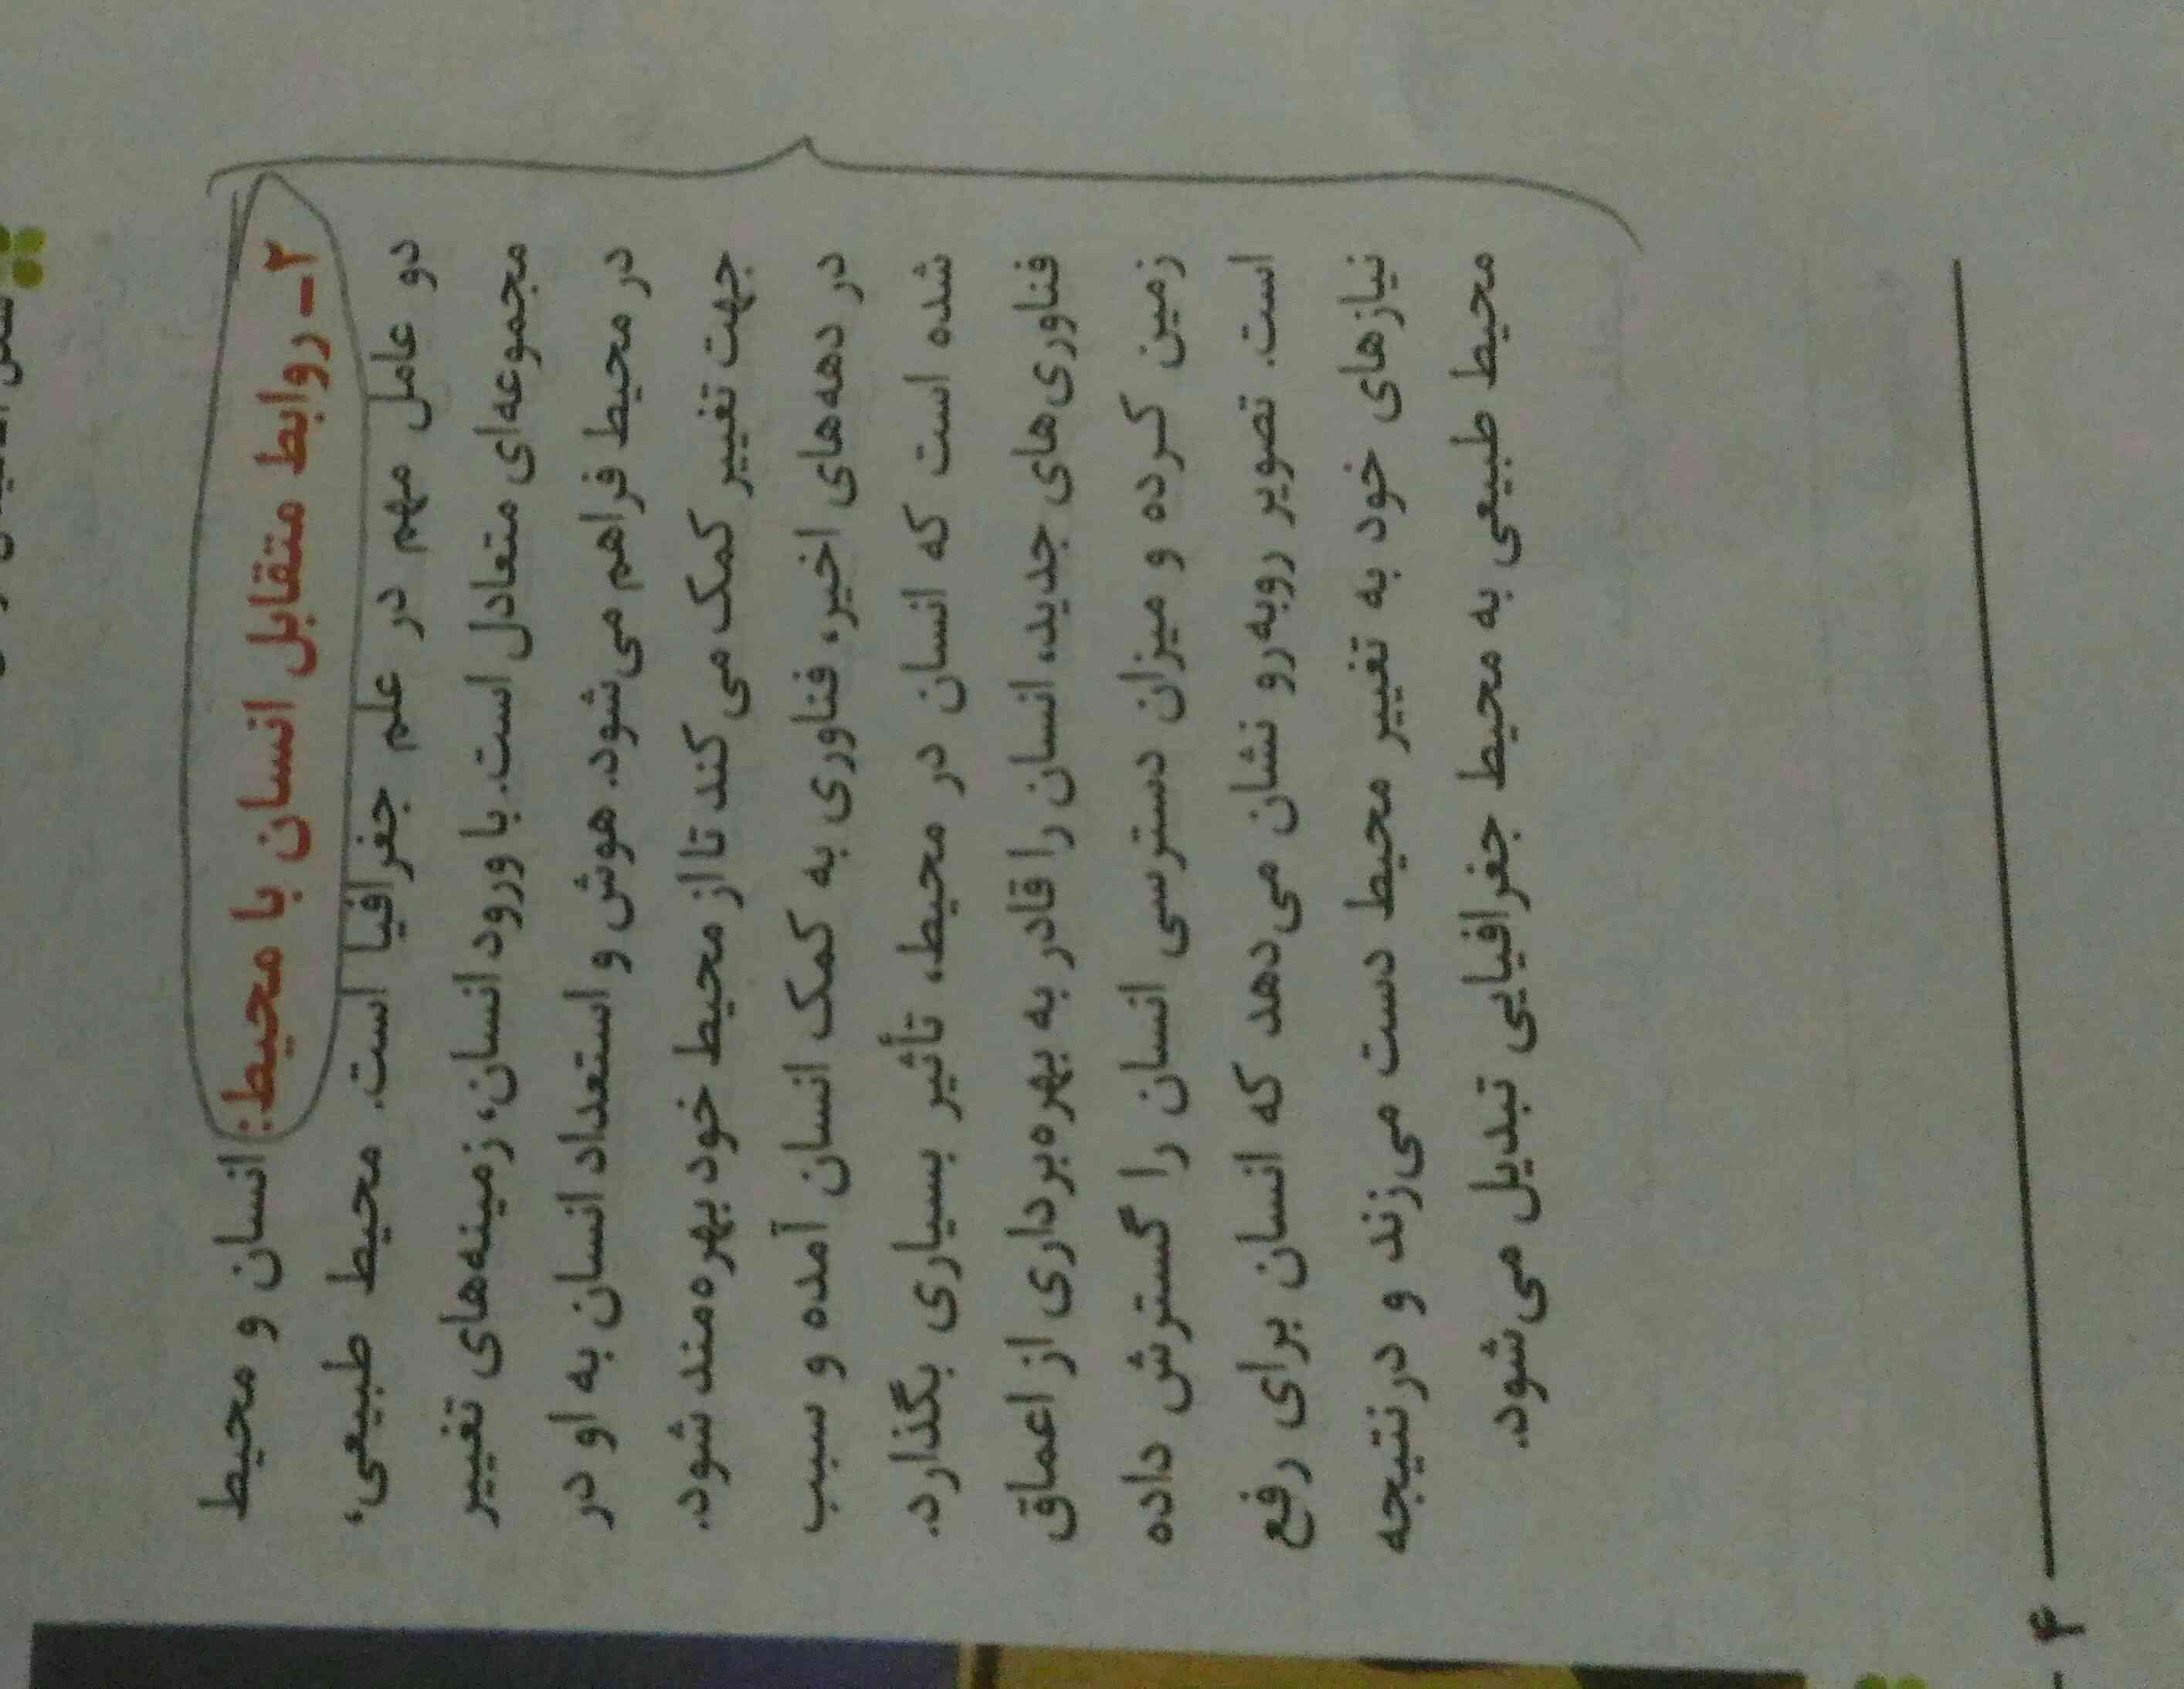 ۲– روابط متقابل انسان با محیط: انسان و محیط
دو عامل مهم در علم جغرافیا است. محیط طبیعی،
مجموعه‌ای متعادل است. با ورود انسان، زمینه‌های تغییر
در محیط فراهم می‌شود. هوش و استعداد انسان به او در
جهت تغییر کمک می‌کند تا از محیط خود بهره‌مند شود.
در دهه‌های اخیر، فناوری به کمک انسان آمده و سبب
شده است که انسان در محیط، تأثیر بسیاری بگذارد.
فناوری‌های جدید، انسان را قادر به بهره‌برداری از اعماق
زمین کرده و میزان دسترسی انسان را گسترش داده
است. تصویر روبه‌رو نشان می‌دهد که انسان برای رفع
نیازهای خود به تغییر محیط دست می‌زند و در نتیجه
محیط طبیعی به محیط جغرافیایی تبدیل می‌شود.
۴